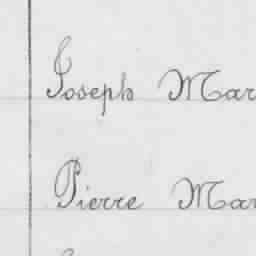 Joseph Mar
Pierre Mar